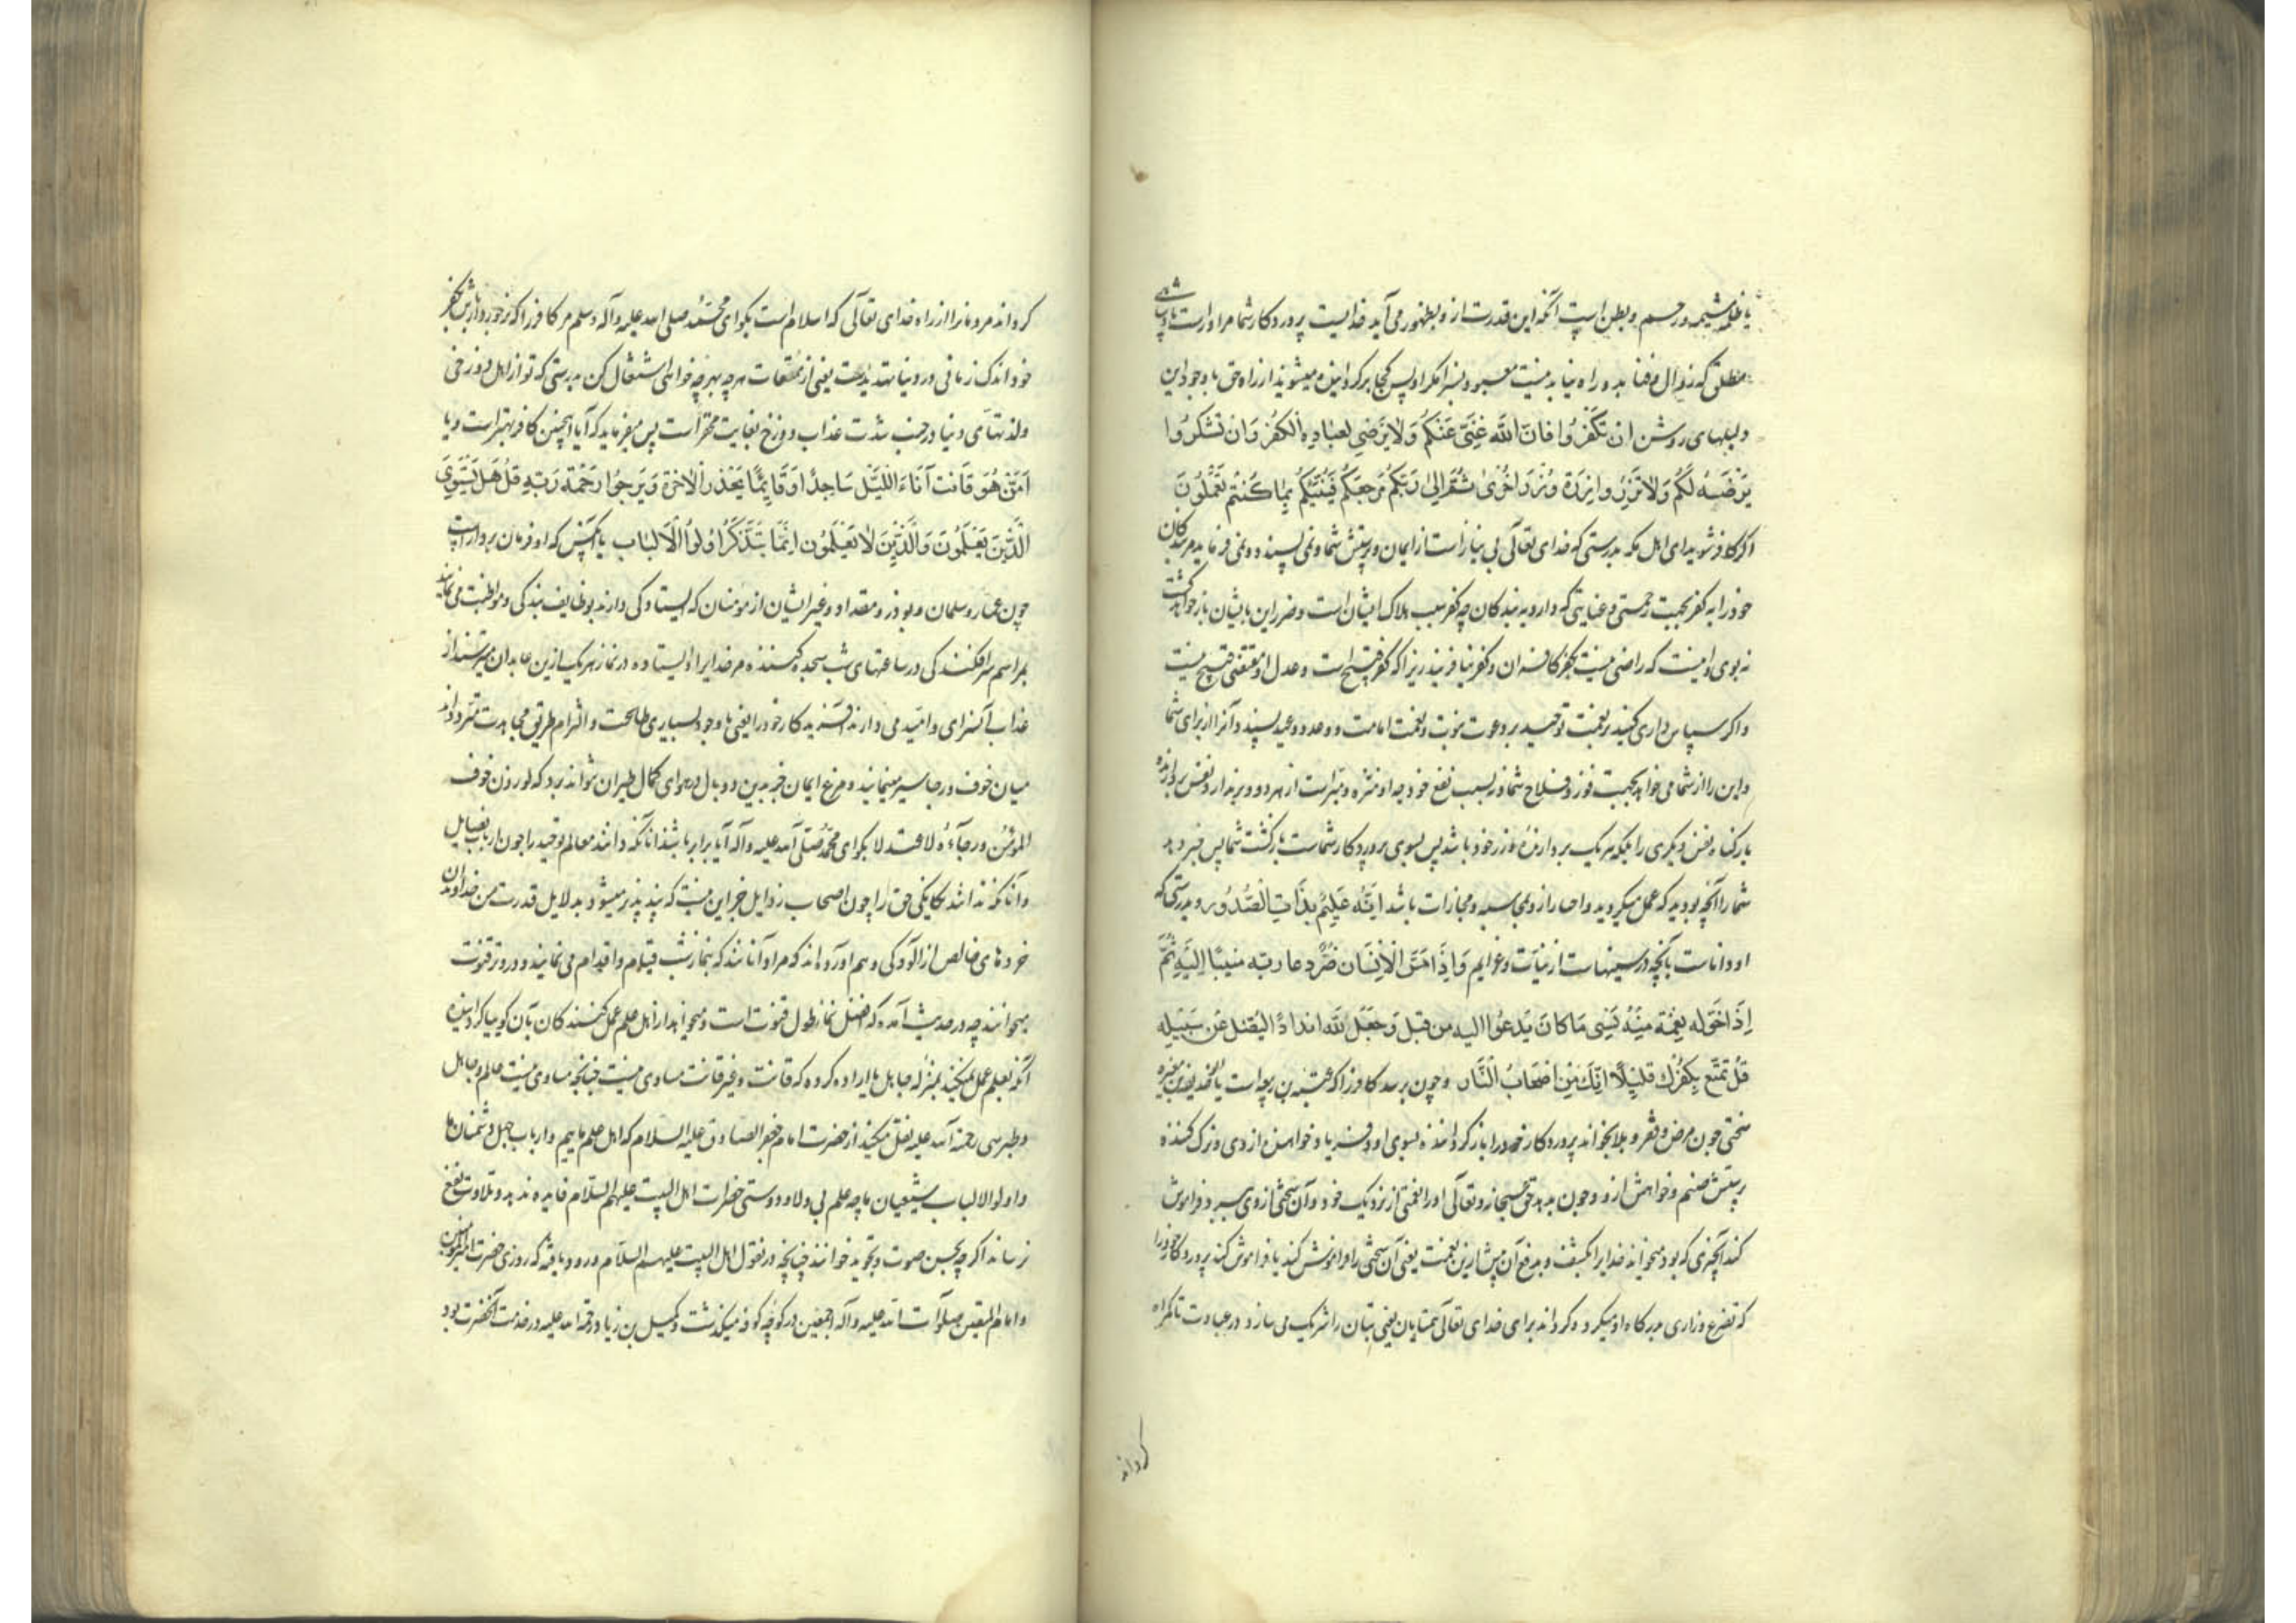 یا ظلمه مشیمه و رحم و بطن است آنکه این قدرت از و بظهور می آید خدایست پروردکار شما مر او راست پادشاهی
مطلق که زوال و فنا بدو راه نیابد نیست معبود بسزا مکر او پس کجا برکردانیده میشوید از راه حق با وجود این
دلیلهای روشن ان تَکفُروا فانّ اللّه غنیّ عنکم ولا یَرضی لعباده الکفر وان تشکروا
یَرضَهُ لکم ولا تزر وازرة وزر اخری ثمّ الی ربّکم مرجعکم فینبّئکم بما کنتم تعملون
اکر کافر شوید ای اهل مکه بدرستی که خدای تعالی بی نیاز است از ایمان و پرستش شما و نمی پسندد و نمی فرماید مر بندکان
خود را به کفر بجهت رحمتی و عنایتی که دارد به بندکان چه کفر سبب هلاک ایشان است و ضرر این بایشان باز خواهد کشت
نه بوی و این نیست که راضی نیست بکفر کافران و کفر نیافریند زیرا که کفر قبیح است و عدل او مقتضی قبیح نیست
و اکر سپاس داری کنید بر نعمت توحید بر دعوت نبوت و نعمت امامت و وعد و وعید پسندد آنرا از برای شما
و این را از شما می خواهد بجهت فوز و فلاح شما نه بسبب نفع خود چه او منزه و مبرّاست از هر دو و برندارد نفس بردارنده
بار کناه نفس دیکری را بلکه هر یک بردارنده وزر خود باشد پس بسوی پروردکار شماست بازکشت شما پس خبر دهد
شما را آنچه بودید که عمل میکردید و اخبار از روی محاسبه و مجازات باشد انّه علیم بذات الصّدور و بدرستی که
او داناست بآنچه در سینهاست از نیّات و عزایم و اذا مسّ الانسان ضرّ دعا ربّه منیبًا الیه ثمّ
اِذا خوّله نعمة منه نسی ما کان یدعوا الیه من قبل وجعل للّه اندادًا لیضل عن سبیله
قل تمتّع بکفرک قلیلًا انّک من اصحاب النّار و چون برسد کافر را که عتبه بن ربیعه است یا ابو حذیفه بن مغیره
سختی چون مرض و فقر و بلا بخواند پروردکار خود را باز کردانیده بسوی او و فریاد خواهنده از وی و ترک کننده
پرستش صنم و خواهش از و و چون بدهد حق سبحانه و تعالی او را نعمتی از نزدیک خود و آن سختی از وی ببرد فراموش
کند آنچیزی که بود میخواند خدایرا بکشف و بدفع آن پیش ازین نعمت یعنی آن سختی را فراموش کند یا فراموش کند پروردکار خود را
که تضرع و زاری بدرکاه او میکرد و کرداند برای خدای تعالی همتایان یعنی بتان را شریک می سازد در عبادت تا کمراه
کرداند
کرداند مردمانرا از راه خدای تعالی که اسلام است بکو ای محمّد صلی الله علیه و آله وسلم مر کافر را که برخوردار باش بکفر
خود اندک زمانی در دنیا یعنی از تمتّعات بهرچه خواهی اشتغال کن بدرستی که تو از اهل دوزخی
و لذتهای دنیا در جنب شدت عذاب دوزخ بغایت محقر است پس میفرماید که آیا اینچنین کافر بهتر است و یا
اَمَّن هو قانت آناء اللّیل ساجدًا و قایمًا یحذر الاخرة ویرجوا رحمة ربّه قل هل یستوی
الّذین یعلمون والّذین لا یعلمون انّما یتذکّر اولوا الالباب یا آنکس که او فرمان بردار است
چون عمار و سلمان و بوذر و مقداد و غیر ایشان از مؤمنان که ایستادکی دارند بوظایف بندکی و مواظبت می نمایند
بمراسم سرافکندکی در ساعتهای شب سجده کننده مر خدایرا و ایستاده در نماز هر یک ازین عابدان میترسند از
عذاب آنسرای و امید می دارند کار خود را یعنی با وجود بسیاری طاعت و التزام طریق مجاهدت متردداند
میان خوف و رجا سیر مینمایند و مرغ ایمان جز بدین دو بال در هوای کمال طیران نتواند برد که لو وزن خوف
المؤمن ورجاءه لاعتدلا بکو ای محمّد صلی الله علیه و آله آیا برابر باشند آنانکه دانند معالم توحید را چون ارباب فضایل
و آنانکه ندانند یکانکی حق را چون اصحاب رذایل جز این نیست که پند پذیر میشود بدلایل قدرت من خداوندان
خردهای خالص از آلودکی وهم آورده اند که مراد آنانند که بنماز شب قیام و اقدام می نمایند و در و تر قنوت
میخوانند چه در حدیث آمده که افضل نماز طول قنوت است و میخواهد از اهل علم عمل کنندکان بآن کوییا کردانیده
آنکه بعلم عمل نمیکنند بمنزله جاهل یا اراده کرده که قانت و غیر قانت مساوی نیست چنانچه مساوی نیست عالم و جاهل
و طبرسی رحمة الله علیه نقل میکند از حضرت امام جعفر الصادق علیه السلام که اهل علم ماییم و ارباب جهل دشمنان ما
و اولوالالباب شیعیان ما چه علم بی ولا و دوستی حضرات اهل البیت علیهم السلام فایده ندهد و تلاوت نفع
نرساند اکر چه بحسن صوت و تجوید خوانند چنانچه در نقول اهل البیت علیهم السلام ورود یافته که روزی حضرت امیرالمؤمنین
و امام المتقین صلوات الله علیه و آله اجمعین در کوچه کوفه میکذشت و کمیل بن زیاد رحمة الله علیه در خدمت آنحضرت بود